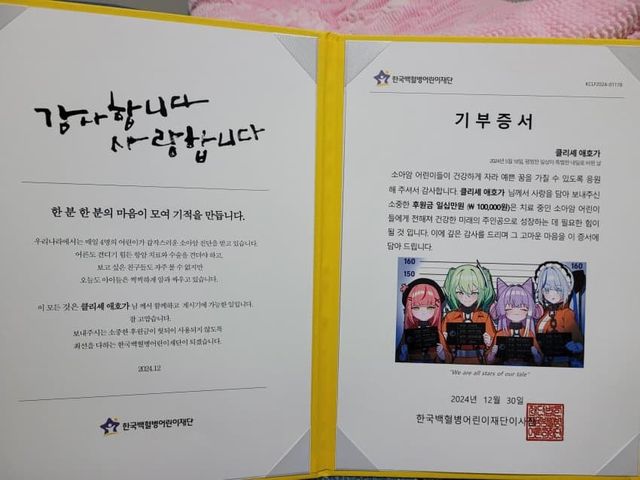 감사합니다
사랑합니다
한 분 한 분의 마음이 모여 기적을 만듭니다.
우리나라에서는 매일 4명의 어린이가 갑작스러운 소아암 진단을 받고 있습니다.
어른도 견디기 힘든 항암 치료와 수술을 견뎌야 하고,
보고 싶은 친구들도 자주 볼 수 없지만
오늘도 아이들은 씩씩하게 암과 싸우고 있습니다.
이 모든 것은 클리셰 애호가 님께서 함께하고 계시기에 가능한 일입니다.
참 고맙습니다.
보내주시는 소중한 후원금이 헛되이 사용되지 않도록
최선을 다하는 한국백혈병어린이재단이 되겠습니다.
2024.12
한국백혈병어린이재단
한국백혈병어린이재단
KCLF2024-01178
기부증서
클리셰 애호가
2024년 5월 18일, 평범한 일상이 특별한 내일로 바뀐 날
소아암 어린이들이 건강하게 자라 예쁜 꿈을 가질 수 있도록 응원
해 주셔서 감사합니다. 클리셰 애호가 님께서 사랑을 담아 보내주신
소중한 후원금 일십만원 (₩ 100,000원)은 치료 중인 소아암 어린이
들에게 전해져 건강한 미래의 주인공으로 성장하는 데 필요한 힘이
될 것 입니다. 이에 깊은 감사를 드리며 그 고마운 마음을 이 증서에
담아 드립니다.
160
150
160
"We are all stars of our tale"
2024년 12월 30일
한국백혈병어린이재단이사장